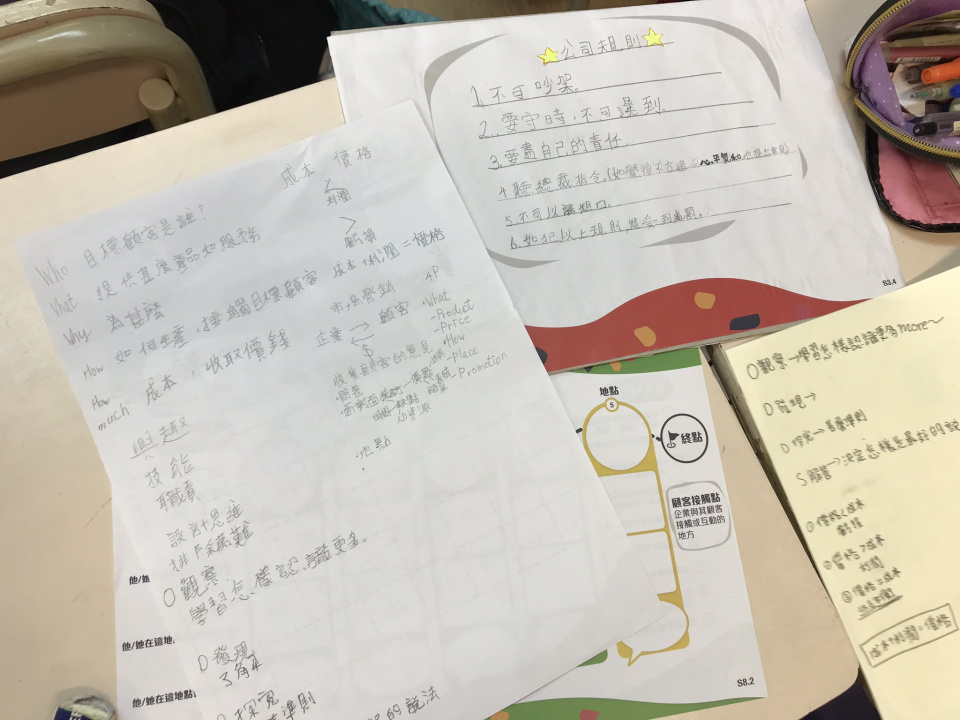 公司規則
1.不可吵架。
2.要守時,不可遲到。
3.要盡自己的責任。
4.聽總裁指令。
5.不可以講粗口。
6.如犯以上規則,將受到處罰。
S3.4
成本 價格
利潤
虧損
成本+利潤=價格
Who 目標顧客是誰?
What 提供甚麼產品如服務
Why 為甚麼
How 如何生產,接觸目標顧客
How much 成本,收取價錢
市場營銷 4P
企業 顧客
$
收集顧客的意見
問卷
面對面
What
-Product
-Price
How
-Place
-Promotion
地點
興趣
技能
職責
設計思維
排除萬難
O 觀察
學習怎樣認識更多。
D 發現
了解
D 探究
準則
的說法
他/她
他/她在這地
他/她在這地點
地點
5
終點
顧客接觸點
企業與其顧客
接觸或互動的
地方
S8.2
O觀察→學習怎樣認識更多more~
D 發現→
D 探究→
S解答→決定怎樣是最好的說
①價格<成本
虧損
②價格>成本
利潤
③價格=成本
成本+利潤=價格